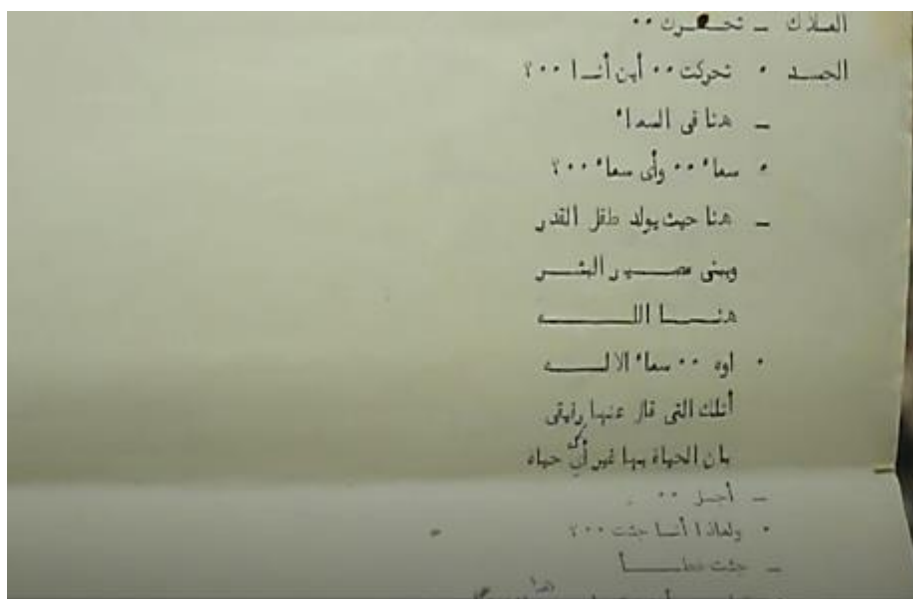 الملاك ـ تحـررت ..
الجسـد • تحركت .. أين أنـا ..؟
ـ هنا فى السماء
• سماء .. وأى سماء ..؟
ـ هنا حيث يولد طفل القدر
ويبنى مصـــير البشــر
هنــــا اللـــــه
• اوه .. سماء الالـــــه
أتلك التى قال عنها رفيقى
بان الحياة بها غير أى حياه
ـ أجـل ..
• ولماذا أنـا جئت ..؟
ـ جئت خطـــأ